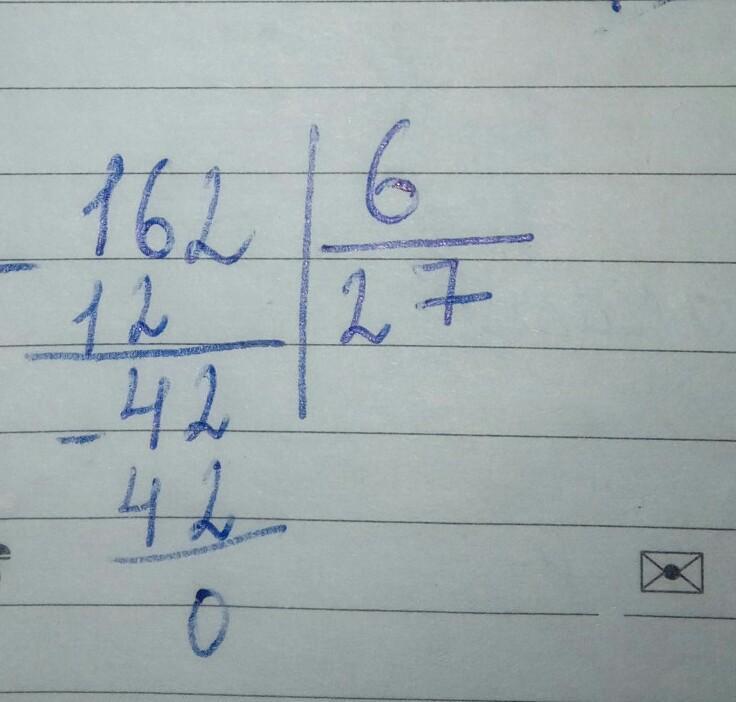 162 | 6
- 12 | 27
- 42
42
0